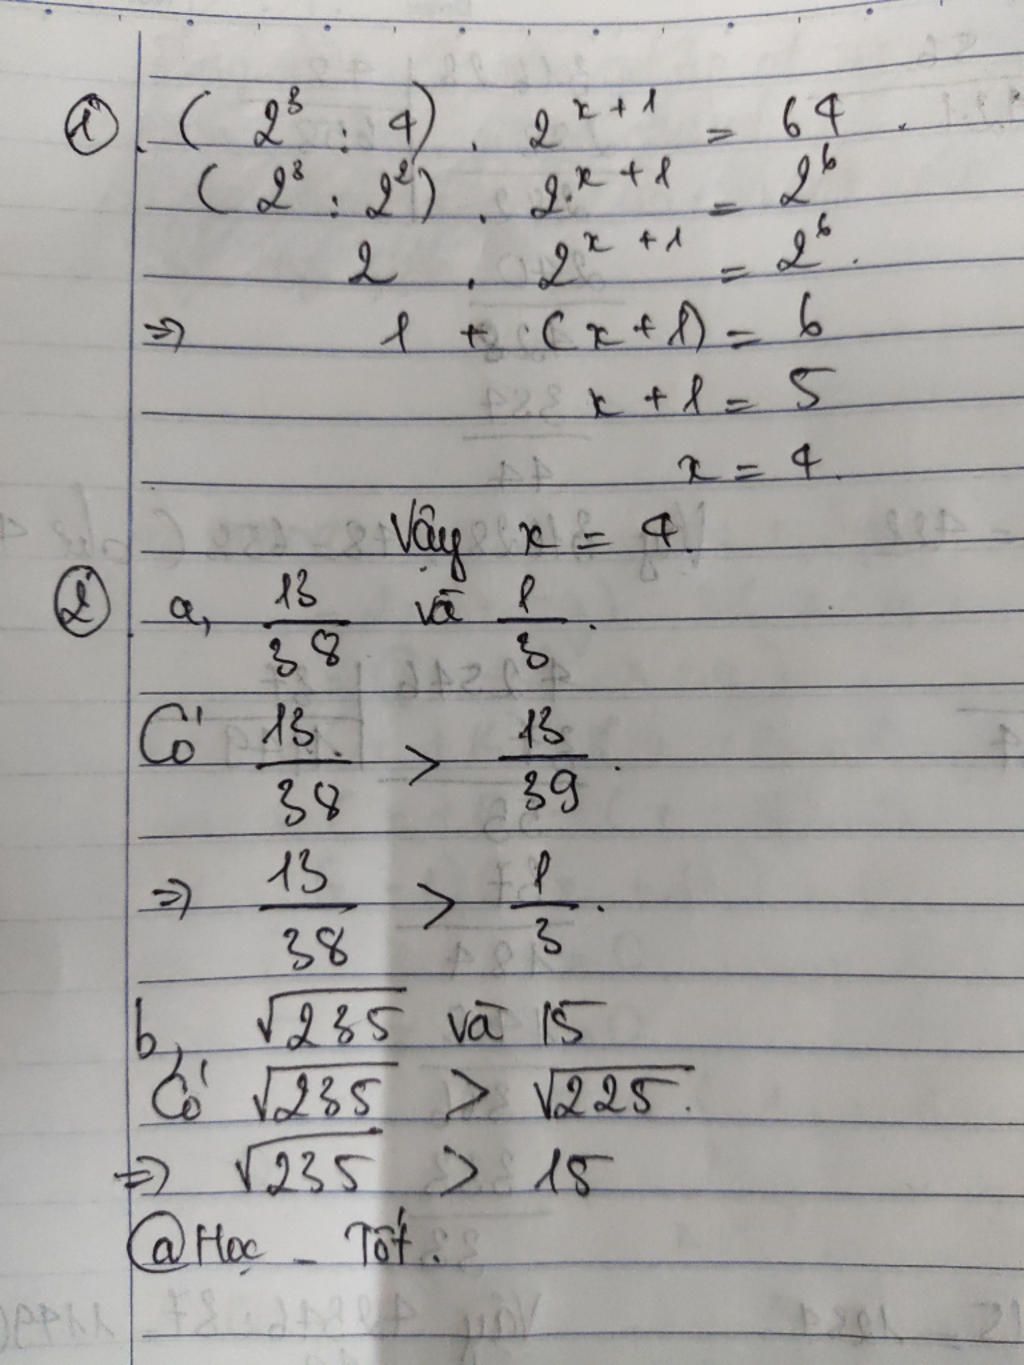 ① (2³ : 4) . 2ˣ⁺¹ = 64
(2³ : 2²) . 2ˣ⁺¹ = 2⁶
2 . 2ˣ⁺¹ = 2⁶.
=> 1 + (x+1) = 6
x + 1 = 5
x = 4.
Vậy x = 4.
② a, 13/38 và 1/3.
Có 13/38 > 13/39.
=> 13/38 > 1/3.
b, √235 và 15
Có √235 > √225.
=> √235 > 15
@Học - Tốt.